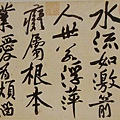 水流如激箭
人世若浮萍
癡屬根本
業愛為煩惱